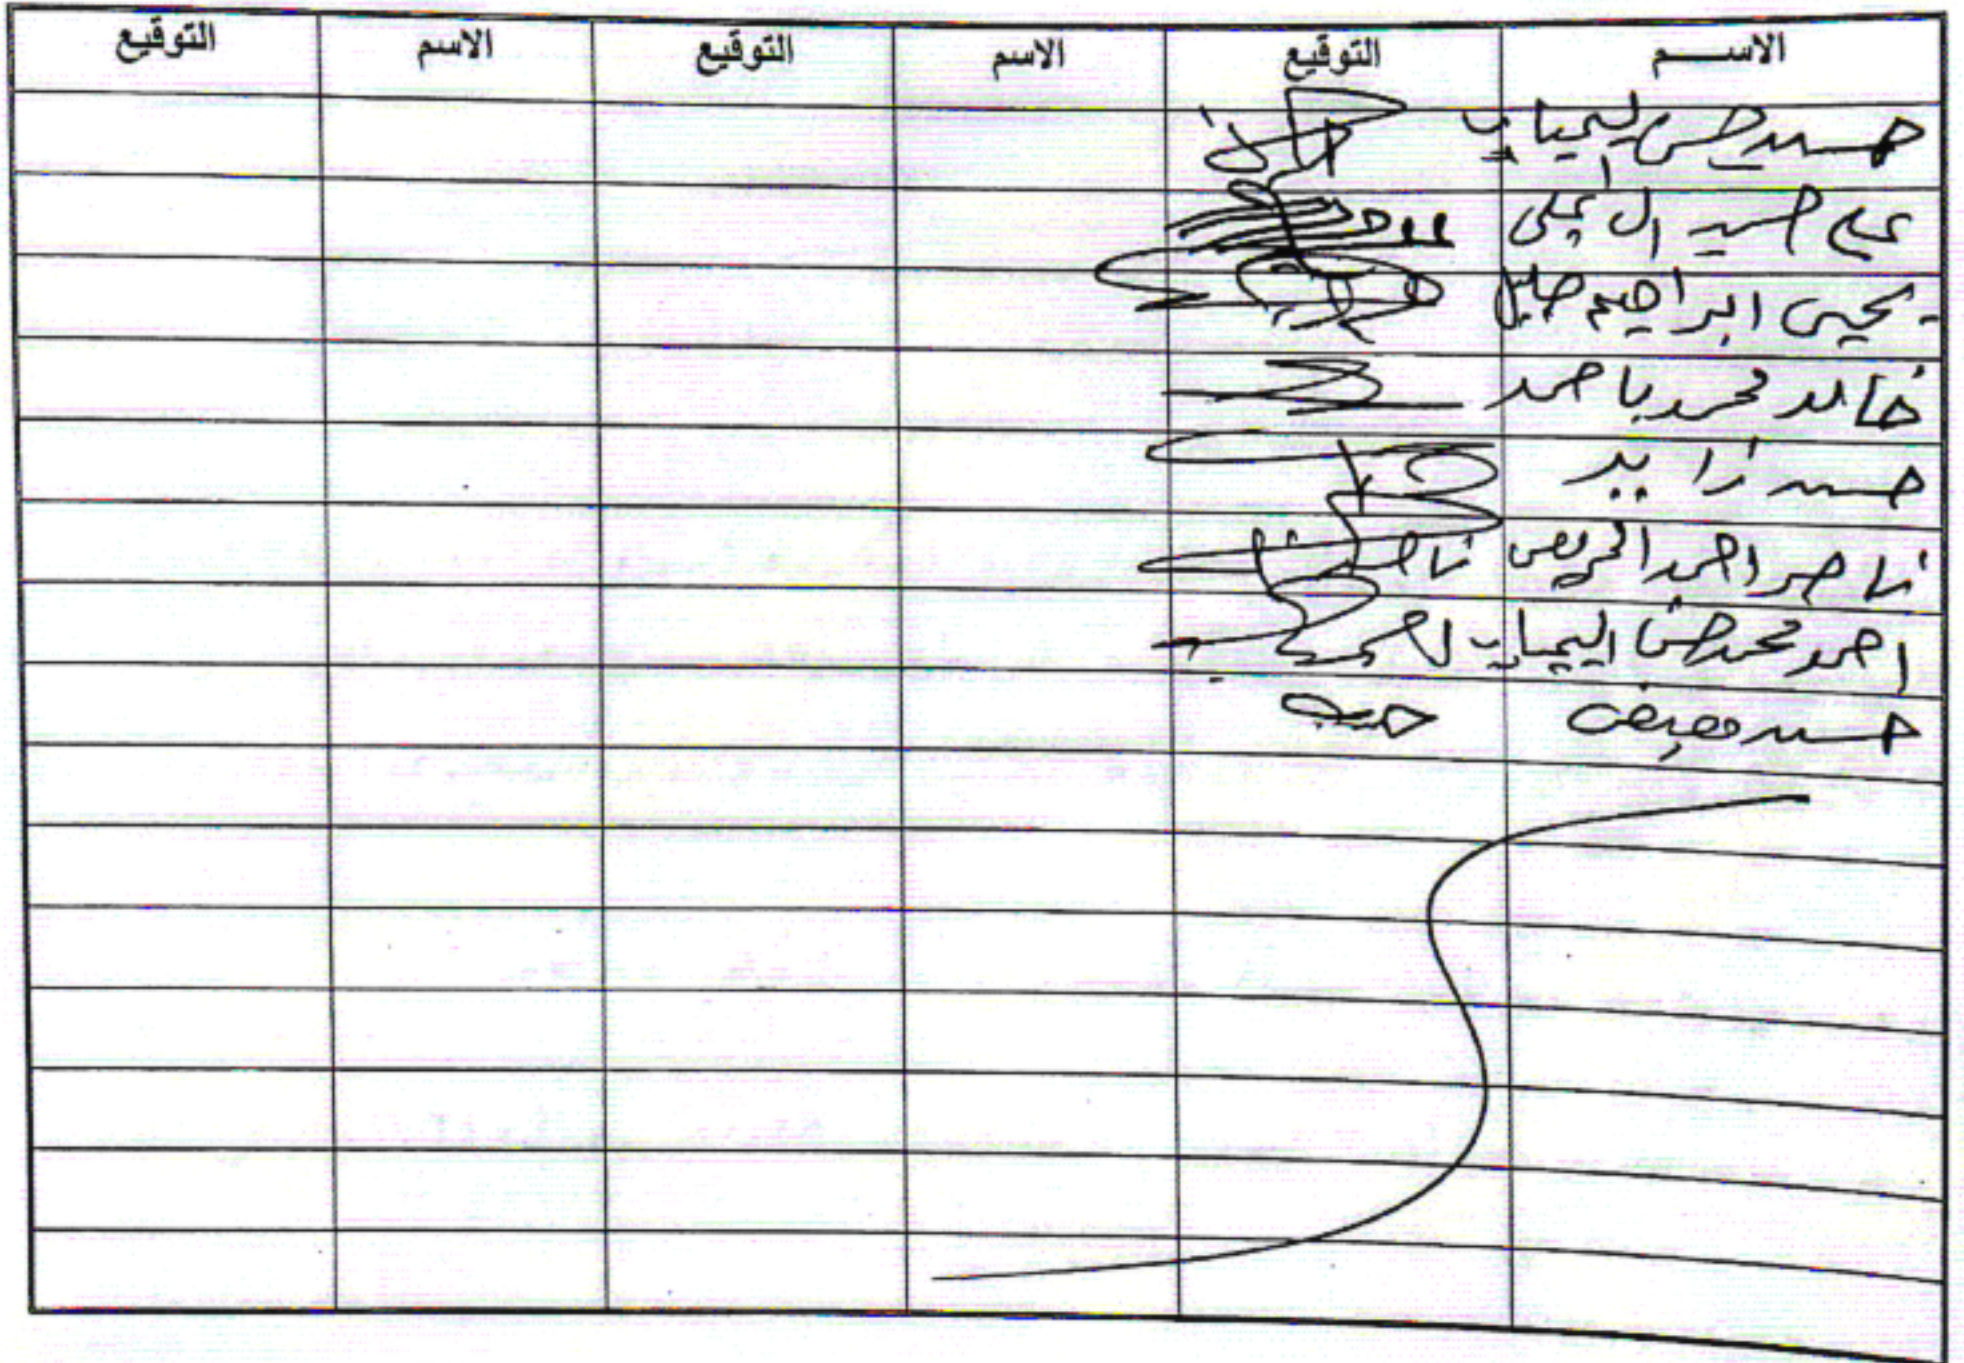 الاســـم التوقيع الاسم التوقيع الاسم التوقيع
حسين حسن اليماني
علي حسين ال يحيى
يحيى ابراهيم خليل
خالد محمد با حمد
حسين زايد
ناصر احمد الحريصي ناصر
احمد محمد حسن اليماني احمد
حسين